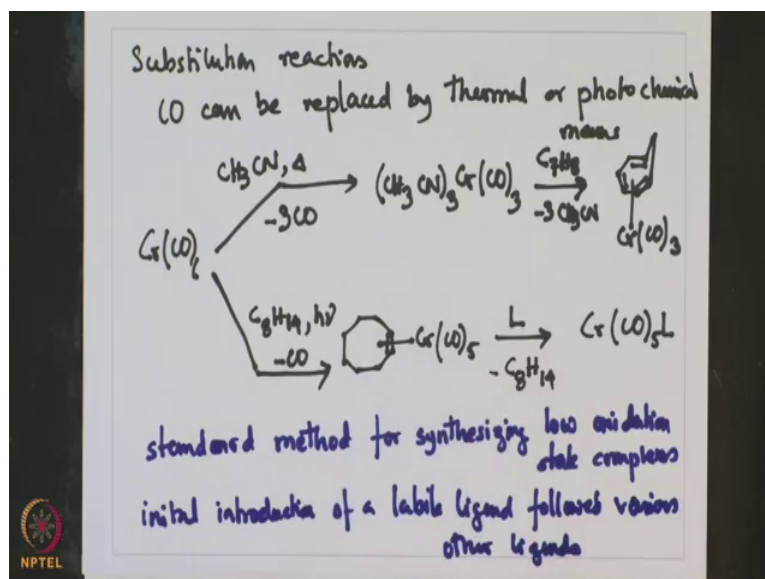 Substitution reactions
CO can be replaced by thermal or photochemical
means
CH3CN, Δ
-3CO
(CH3CN)3Cr(CO)3
C7H8
-3CH3CN
Cr(CO)3
Cr(CO)6
C8H14, hν
-CO
Cr(CO)5
L
- C8H14
Cr(CO)5L
standard method for synthesizing low oxidation
state complexes
initial introduction of a labile ligand followed various
other ligands
NPTEL